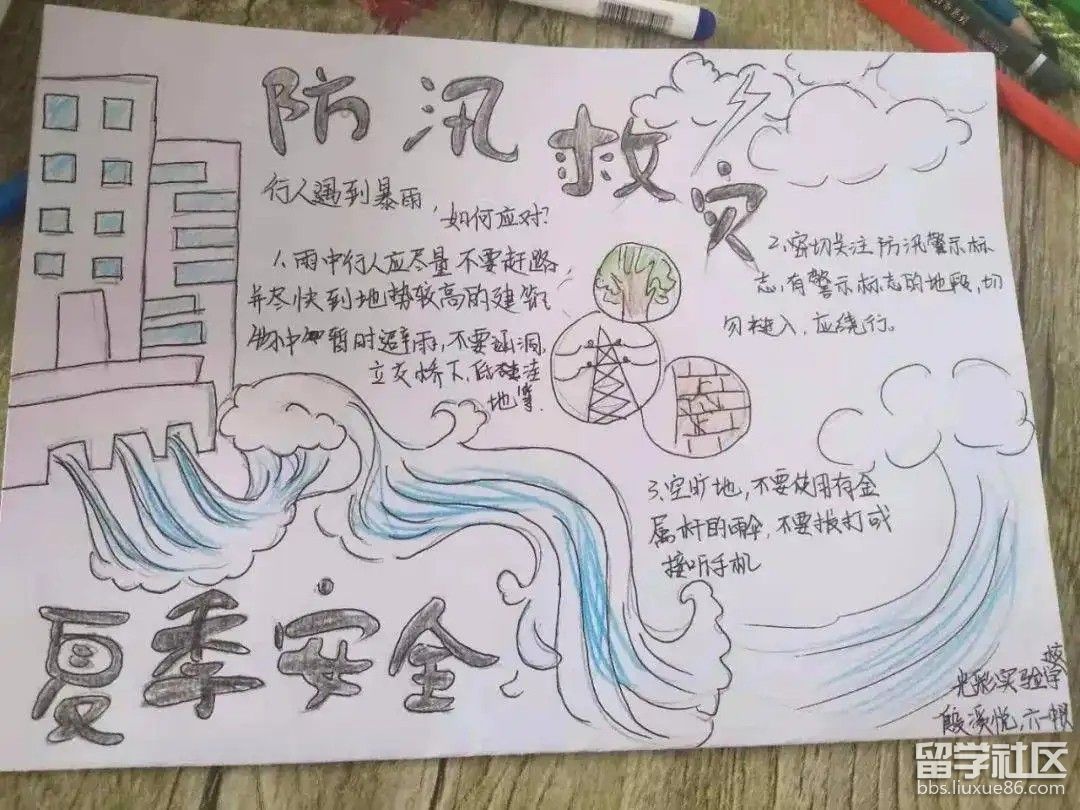 防汛救灾
行人遇到暴雨,如何应对?
1、雨中行人应尽量不要赶路
并尽快到地势较高的建筑
物中暂时避雨,不要涵洞,
立交桥下,低洼
地等.
2、密切关注防汛警示标
志,有警示标志的地段,切
勿进入,应绕行。
3、空旷地,不要使用有金
属杆的雨伞,不要拨打或
接听手机
夏季安全
光彩实验学校
殷溪悦,六一班
留学社区
bbs.liuxue86.com